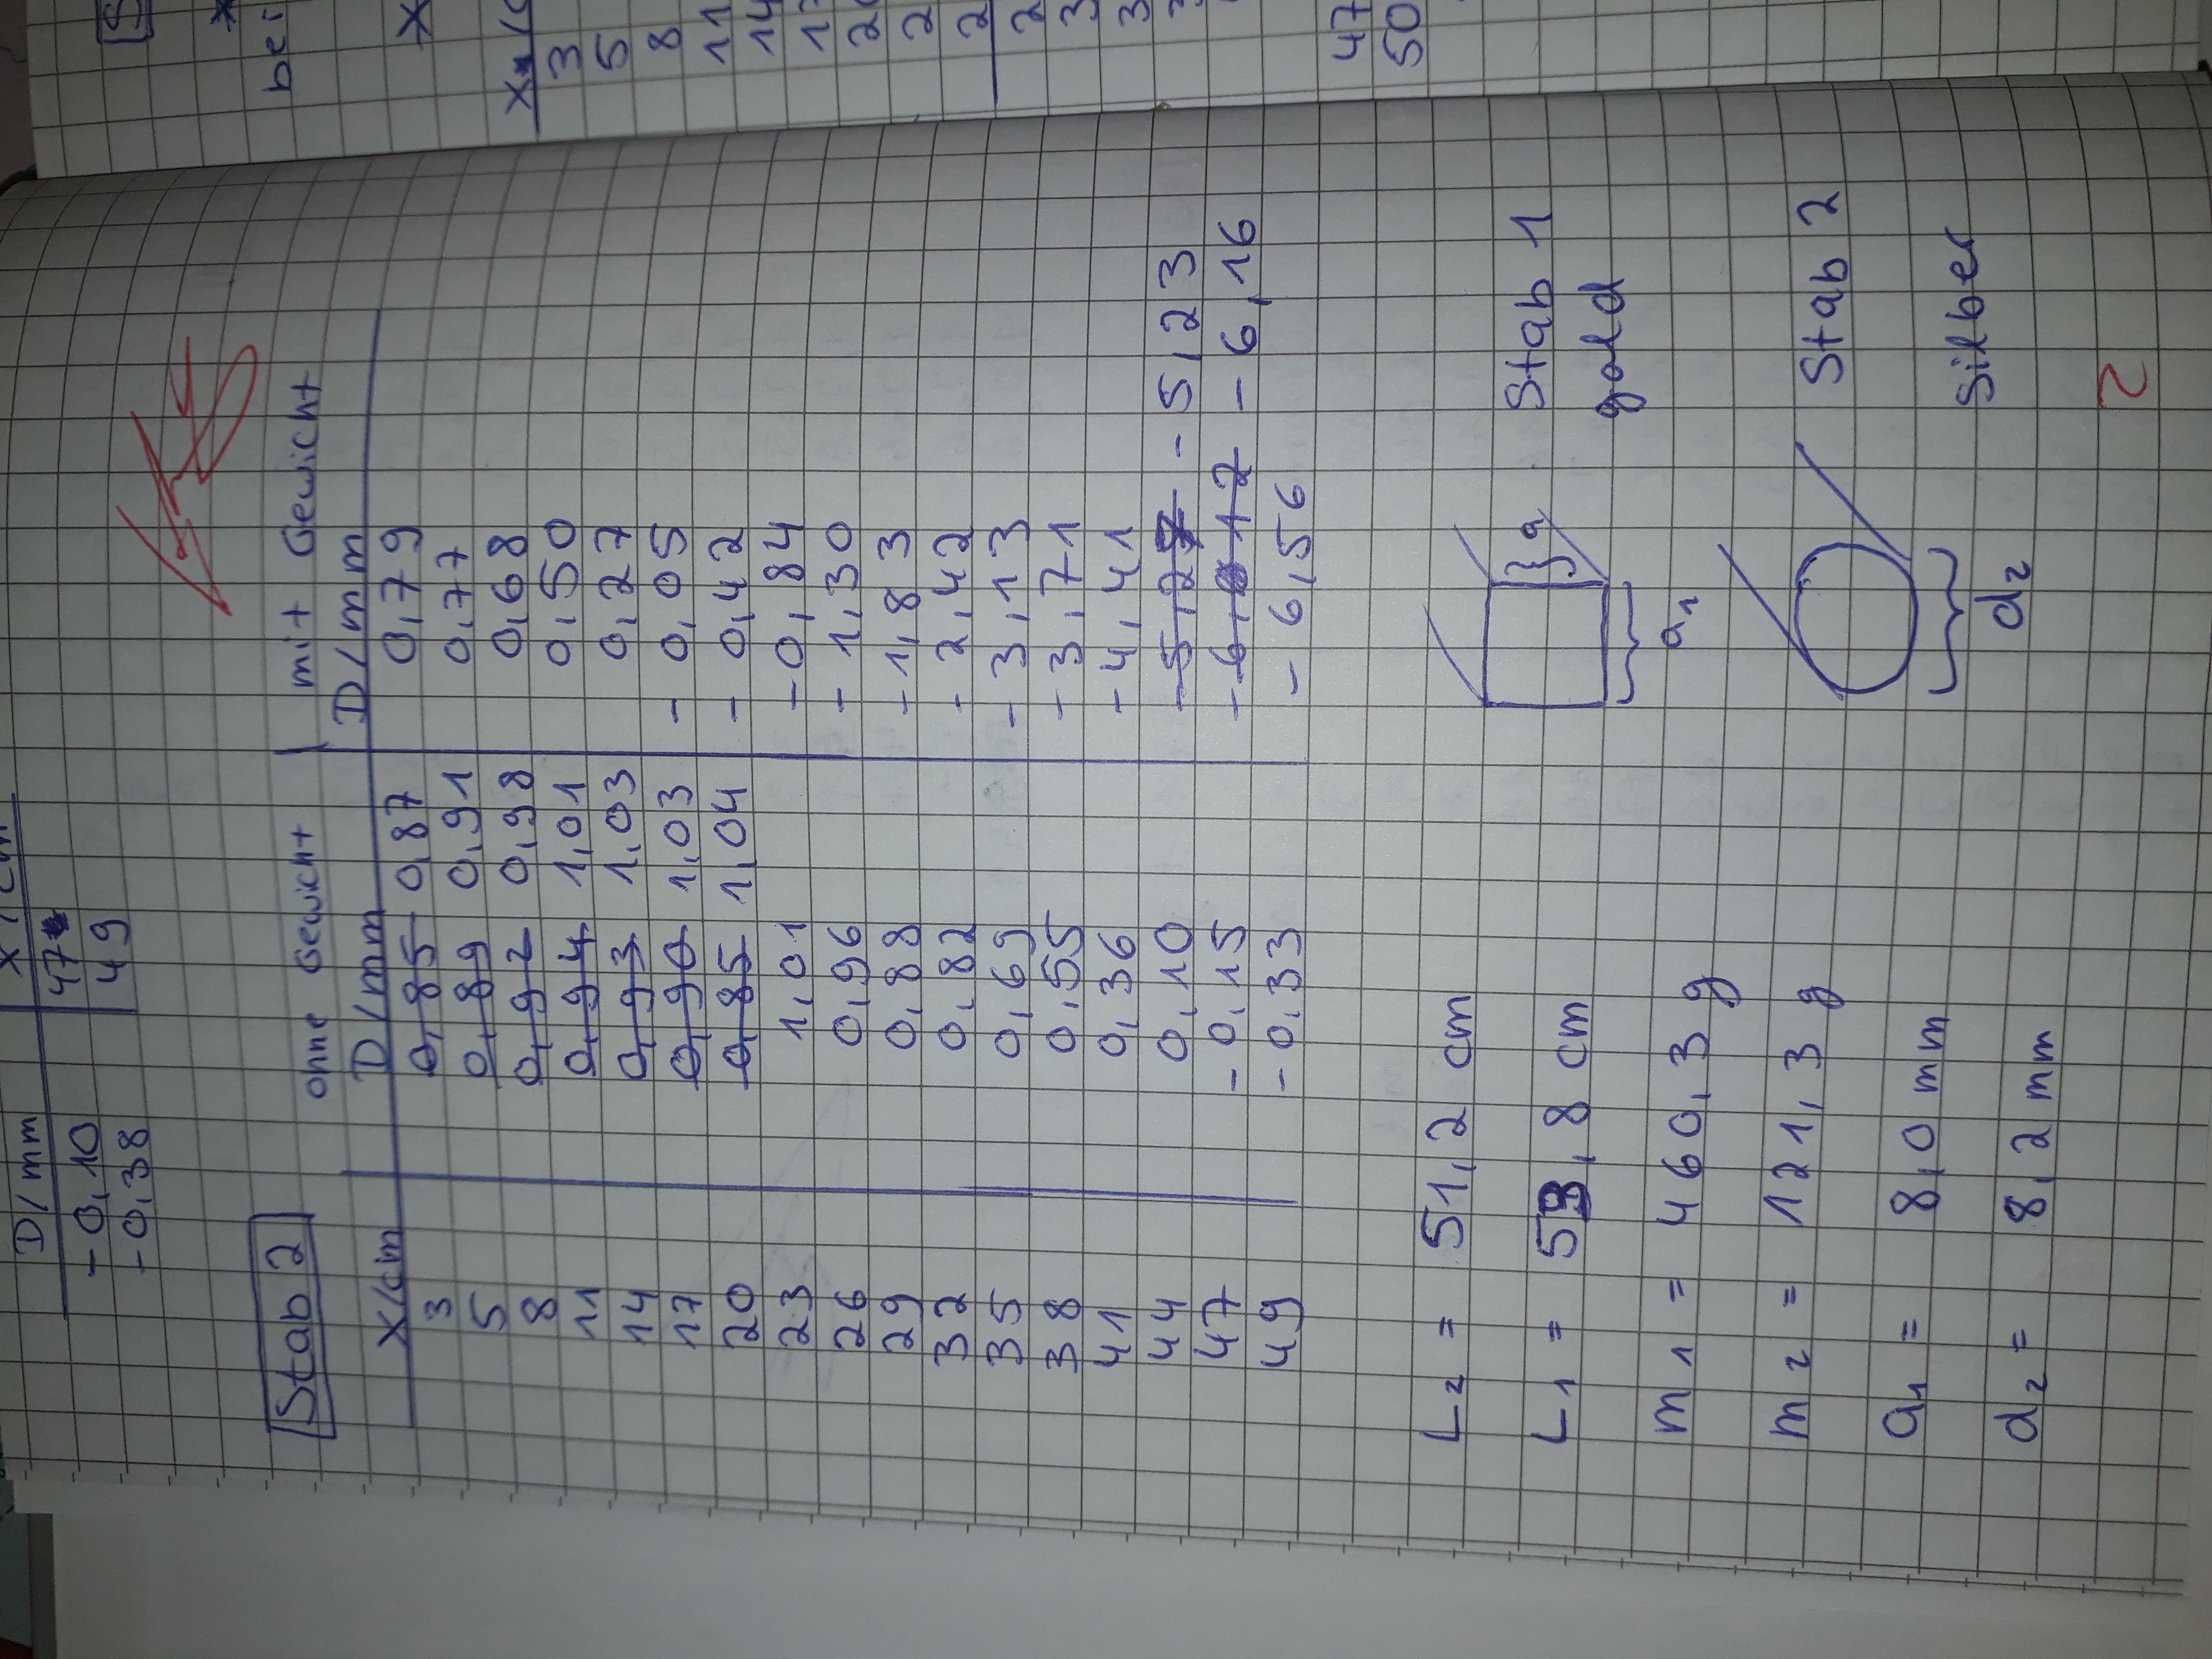 D/mm x/cm
-0,10 47
-0,38 49
Stab 2
ohne Gewicht mit Gewicht
x/cm D/mm D/mm
3 0,85 0,87 0,79
5 0,89 0,91 0,77
8 0,92 0,98 0,68
11 0,94 1,01 0,50
14 0,93 1,03 0,27
17 0,90 1,03 -0,05
20 0,85 1,04 -0,42
23 1,01 -0,84
26 0,96 -1,30
29 0,88 -1,83
32 0,82 -2,42
35 0,69 -3,13
38 0,55 -3,71
41 0,36 -4,41
44 0,10 -5,27 -5,23
47 -0,15 -6,12 -6,16
49 -0,33 -6,56
L2 = 51,2 cm
L1 = 53,8 cm
m1 = 460,3 g
m2 = 121,3 g
a1 = 8,0 mm
d2 = 8,2 mm
a
a1
Stab 1
gold
d2
Stab 2
silber
2
bei
x
3
5
8
11
14
47
50